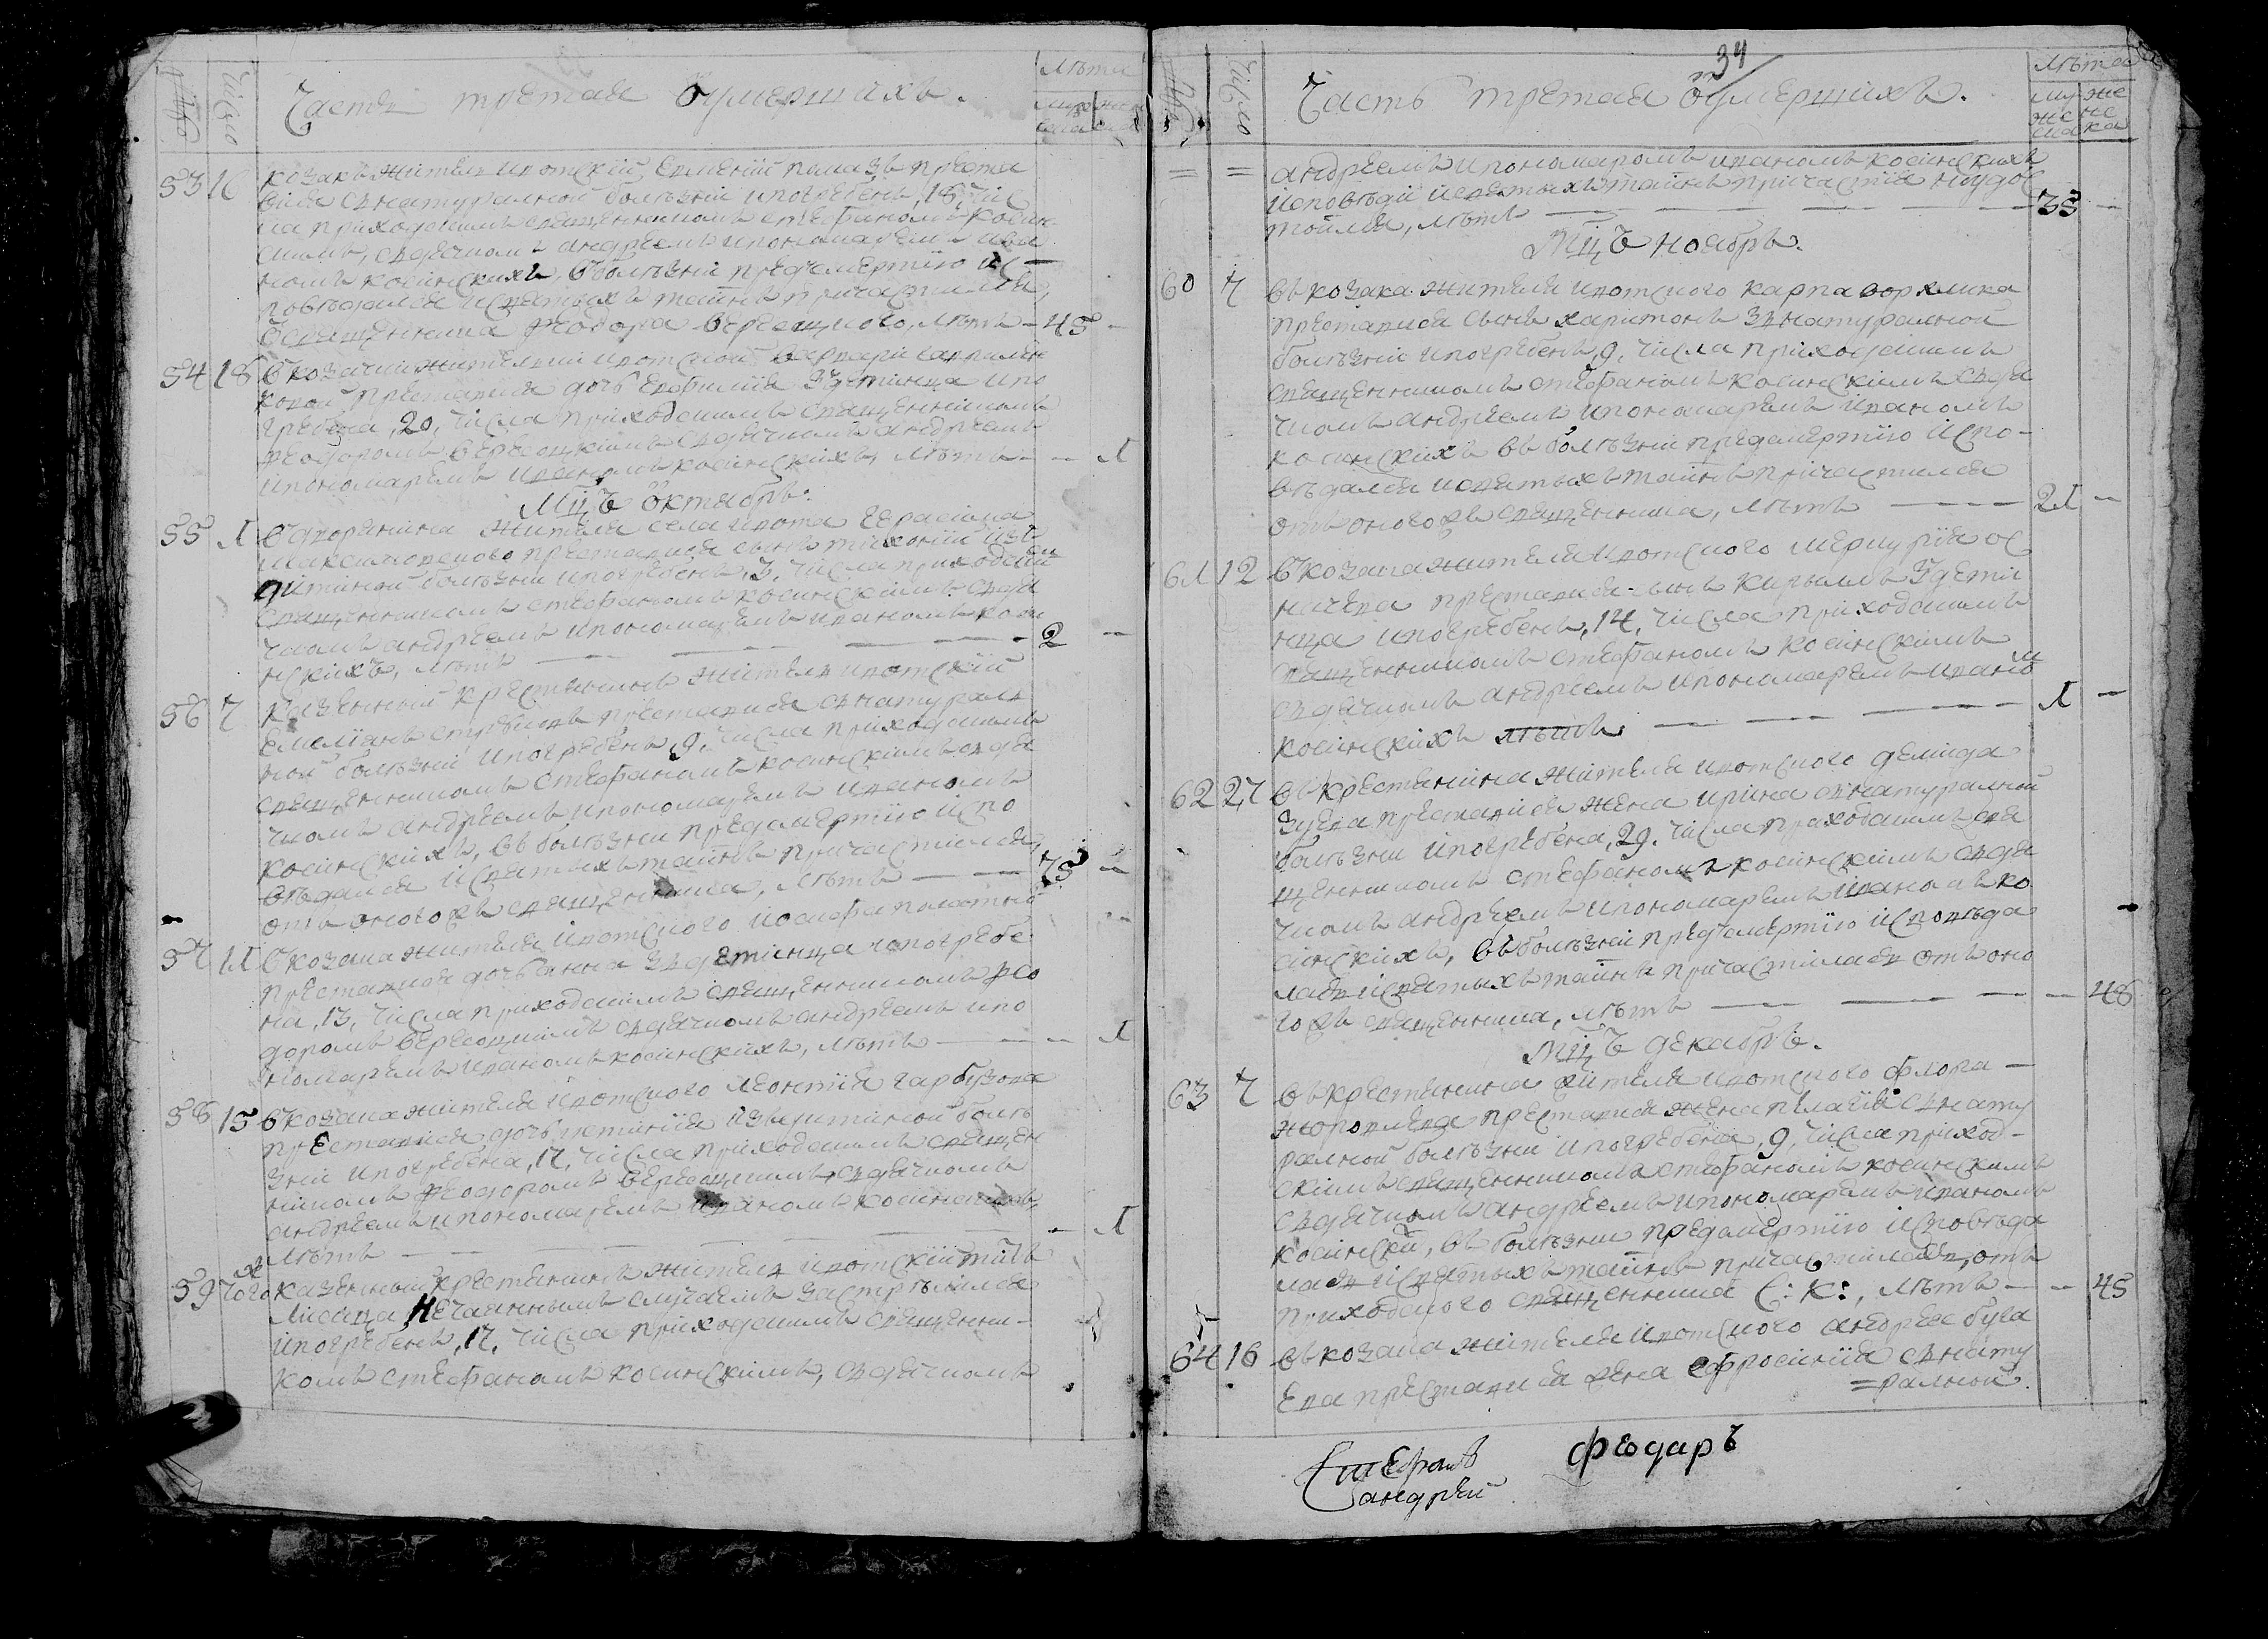 Число
Часть третая О умершихъ.
Лѣта
53 16 козакъ житель ипотскій Евменій прета
вися снатуралной болѣзній ипогребенъ, 18, чис
ла приходскимъ священникомъ стефаномъ косин
скимъ, сдячкомъ андреемъ ипономаремъ ива
номъ косинскихъ, вболѣзній предсмертію ис
повѣдался исвятыхъ тайнъ причастился,
священника феодора вересоцкого, лѣтъ - 45 -
54 18 вкозачки жителки ипотской
ковой преставися дочъ евфимія здетинца ипо
гребена, 20, числа приходскимъ священникомъ
феодоромъ вересоцкимъ сдячкомъ андреемъ
ипономаремъ иваномъ косинскихъ, лѣтъ - - 1
Мцъ октябрь.
55 1 вдворянина жителя села ипота герасима
максимовского преставися синъ тихоній изъ
дитиной болѣзни ипогребенъ, 3, числа приходски
священникомъ стефаномъ косинскимъ сдя
чкомъ андреемъ ипономаремъ иваномъ коси
нскихъ, лѣтъ 2 -
56 7 казенный крестянинъ житель ипотскій
емеліанъ преставися снатурал
ной болѣзній ипогребенъ, 9, числа приходскимъ
священникомъ стефаномъ косинскимъ сдя
чкомъ андреемъ ипономаремъ иваномъ
косинскихъ, въ болѣзни предсмертію испо
вѣдался исвятыхъ тайнъ причастился,
отъ оногожъ священника, лѣтъ 75 -
57 11 вкозака жителя ипотского иосифа
преставися дочъ анна здетинца ипогребе
на, 13, числа приходскимъ священникомъ фео
доромъ вересоцкимъ сдячкомъ андреемъ ипо
номаремъ иваномъ косинскихъ, лѣтъ - 1
58 15 вкозака жителя ипотского леонтія гарбузова
преставися дочъ устинія издитиной болѣ
зній ипогребена, 17, числа приходскимъ священ
никомъ феодоромъ вересоцкимъ сдячкомъ
андреемъ ипономаремъ иваномъ косинскихъ,
лѣтъ - 1
59 казенный крестянинъ житель ипотскій
нечаяннымъ случаемъ застрѣлился
ипогребенъ, 17, числа приходскимъ священни-
комъ стефаномъ косинскимъ, сдячкомъ
34
Число
Часть третая О умершихъ.
Лѣта
му же
же нс
ска ка
= = андреемъ ипономаромъ иваномъ косинскихъ
исповѣдій исвятыхъ тайнъ причастія неудос
тойлся, лѣтъ 35 -
Мцъ ноябрь.
60 7 въ козака жителя ипотского карпа
преставися синъ харитонъ знатуралной
болѣзній ипогребенъ, 9, числа приходскимъ
священникомъ стефаномъ косинскимъ сдя
чкомъ андреемъ ипономаремъ иваномъ
косинскихъ въ болѣзній предсмертію испо-
вѣдался исвятыхъ тайнъ причастился
отъ оногожъ священника, лѣтъ 21 -
61 12 вкозака жителя ипотского меркурія ос
преставися синъ кириллъ здети
нца ипогребенъ, 14, числа приходскимъ
священникомъ стефаномъ косинскимъ
сдячкомъ андреемъ ипономаремъ ивано
косинскихъ лѣтъ 1 -
62 27 въ крестянина жителя ипотского демида
зуева преставися жена ирина снатуралной
болѣзни ипогребена, 29, числа приходскимъ свя
щенникомъ стефаномъ косинскимъ сдя
чкомъ андреемъ ипономаремъ иваномъ ко
синскихъ, въ болѣзній предсмертію исповѣда
лась исвятыхъ тайнъ причастилась отъ оно
гожъ священника, лѣтъ - 48
Мцъ декабрь.
63 7 въ крестянина жителя ипотского флора
преставися жена пелагія снату
ралной болѣзни ипогребена, 9, числа приход-
скимъ священникомъ стефаномъ косинскимъ
сдячкомъ андреемъ ипономаремъ иваномъ
косински, въ болѣзни предсмертію исповѣда
лась исвятыхъ тайнъ причастилась, отъ
приходского священника С: К:, лѣтъ - 45
64 16 въ козака жителя ипотского андрея буга
ева преставися жена ефросинія снату
=ралной.
Стефанъ
андрей
феодаръ